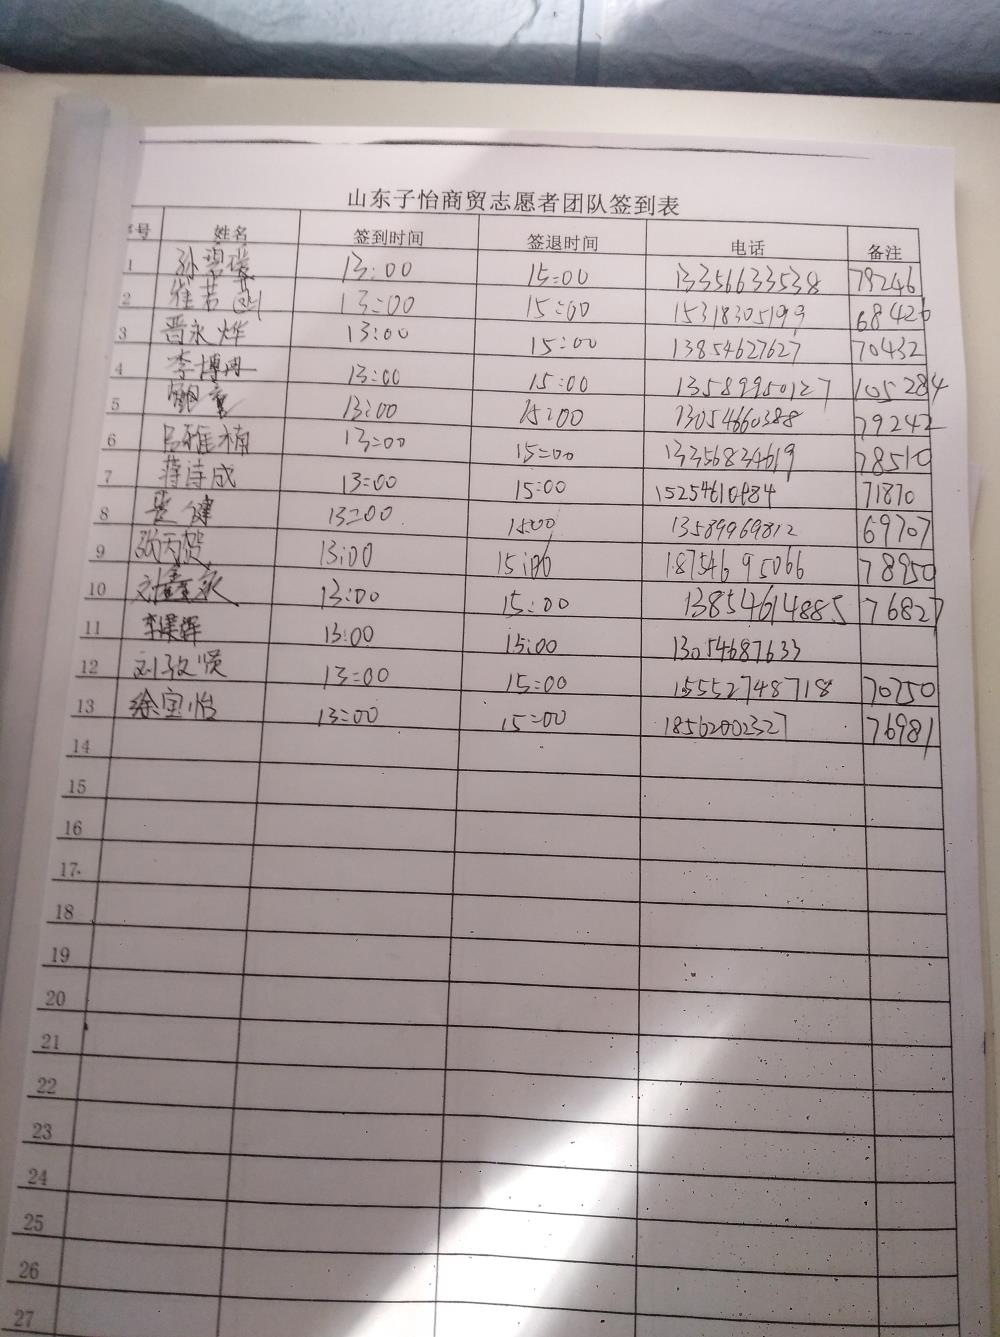 山东子怡商贸志愿者团队签到表
序号 姓名 签到时间 签退时间 电话 备注
1 孙碧璞 13:00 15:00 13356633538 79246
2 崔若 13:00 15:00 15318305199 68426
3 晋永烨 13:00 15:00 13854627627 70432
4 李博冉 13:00 15:00 13589950127 105284
5 13:00 15:00 13054660388 79242
6 吕雅楠 13:00 15:00 13356834619 78510
7 蒋诗成 13:00 15:00 15254610484 71870
8 健 13:00 15:00 13589969812 69707
9 张天贺 13:00 15:00 18754695066 78950
10 刘鑫 13:00 15:00 13854614885 76827
11 李 辉 13:00 15:00 13054687633
12 刘孜贤 13:00 15:00 15552748718 70750
13 徐宝怡 13:00 15:00 18562002327 76981
14
15
16
17
18
19
20
21
22
23
24
25
26
27